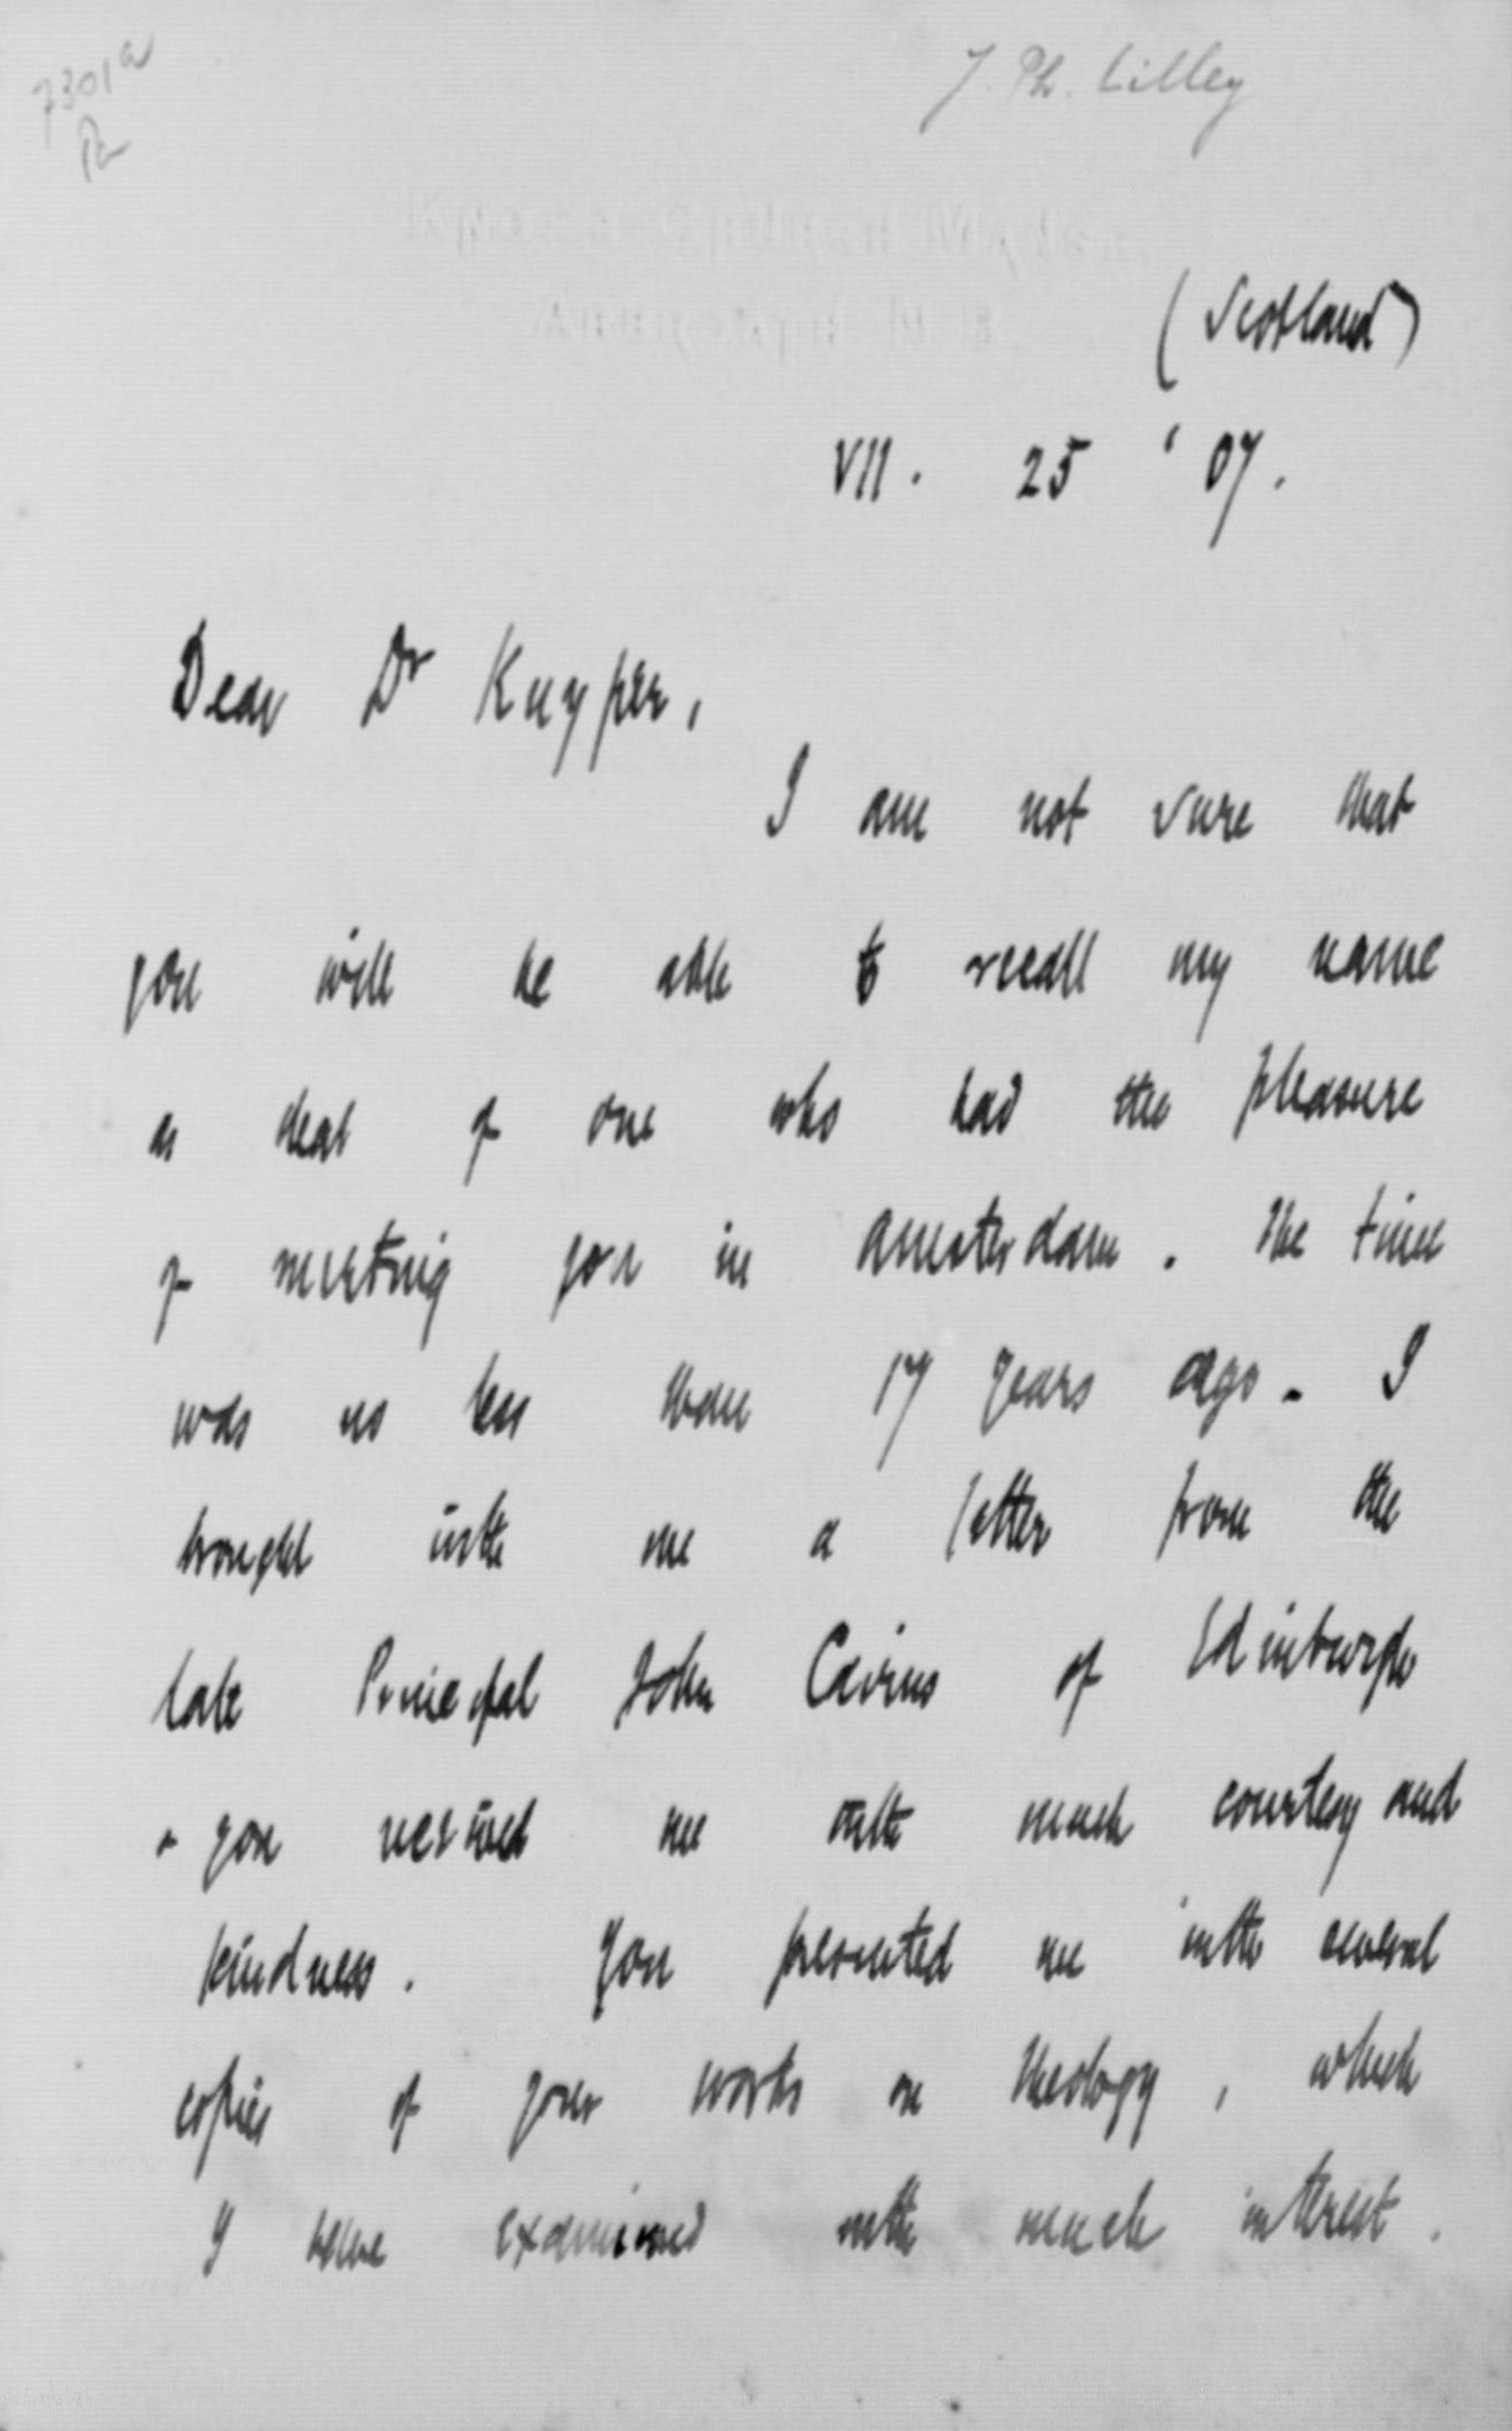 7301a
J. Ph. Lilley
(Scotland)
VII. 25 '07.
Dear Dr Kuyper,
I am not sure that
you will be able to recall my name
as that of one who had the pleasure
of meeting you in Amsterdam. The time
was no less than 17 years ago. I
brought with me a letter from the
late Principal John Cairns of Edinburgh
& you received me with much courtesy and
kindness. You presented me with several
copies of your works on theology, which
I have examined with much interest.